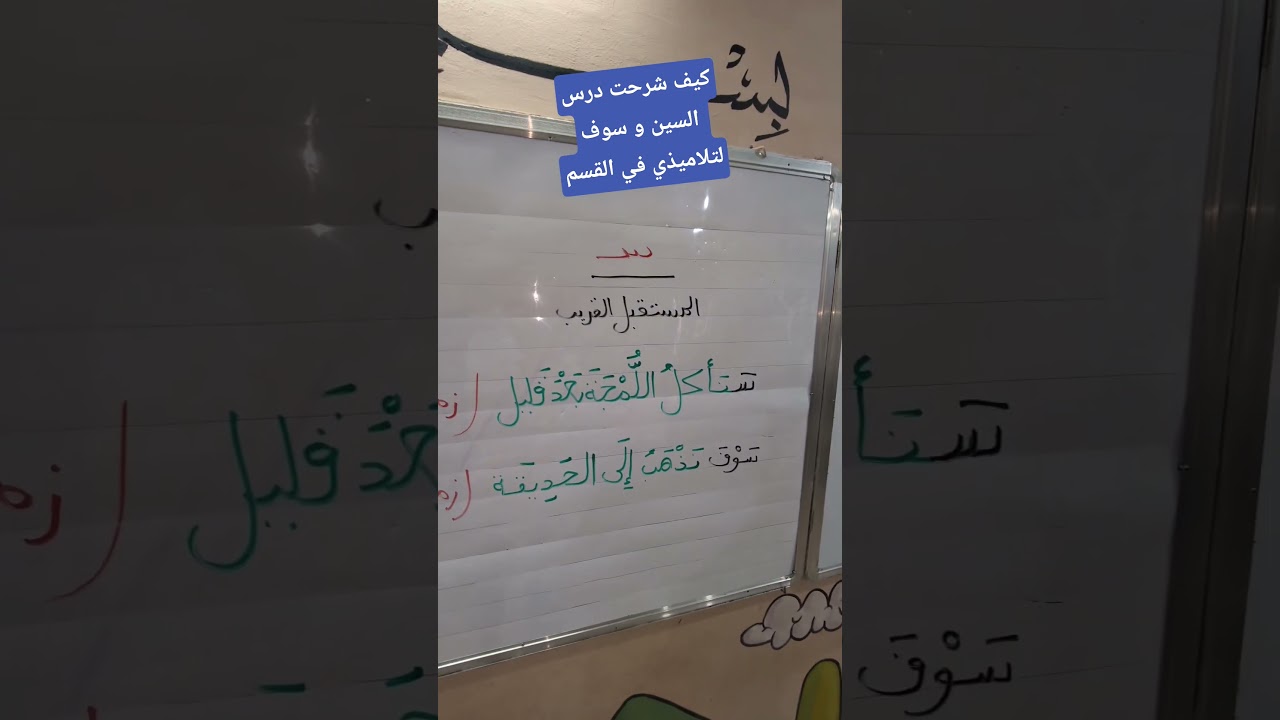 كيف شرحت درس
السين و سوف
لتلاميذي في القسم
لِبِسْـ
سـ
المستقبل القريب
سَنَأكلُ اللُّمْجَةَ بَعْدَ قَليل
سَوْفَ نَذْهَبُ إِلَى الحَدِيقَة